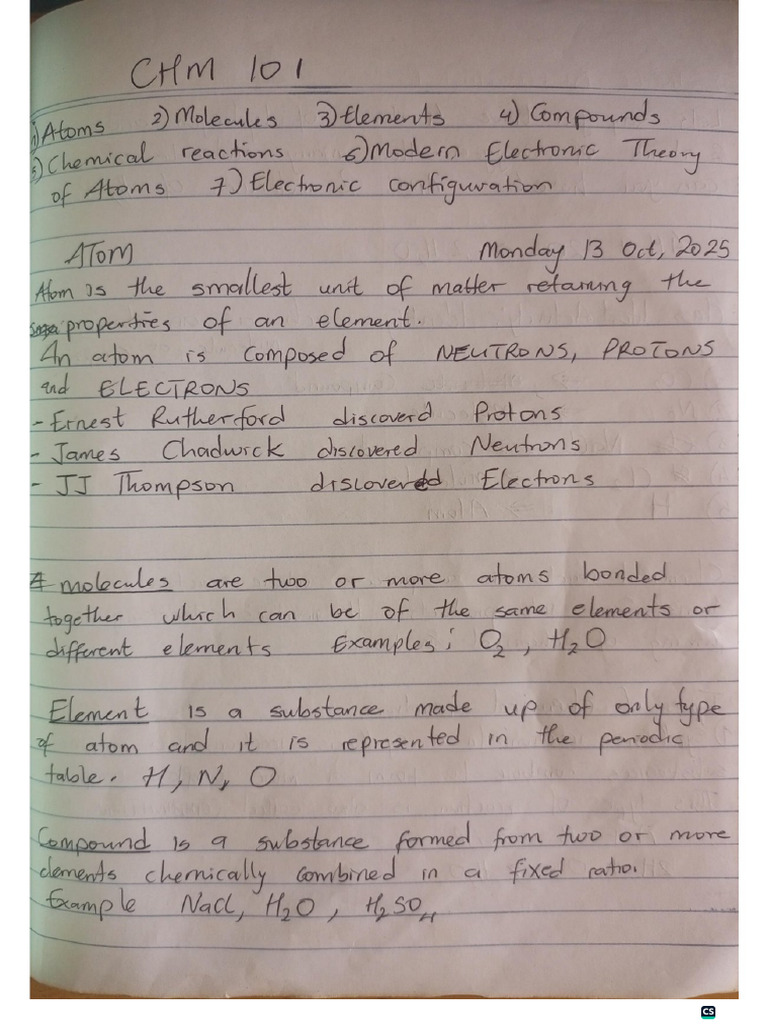 CHM 101
1) Atoms 2) Molecules 3) Elements 4) Compounds
5) Chemical reactions 6) Modern Electronic Theory
of Atoms 7) Electronic configuration
ATOM Monday 13 Oct, 2025
Atom is the smallest unit of matter retaining the
properties of an element.
An atom is composed of NEUTRONS, PROTONS
and ELECTRONS
- Ernest Rutherford discoverd Protons
- James Chadwick discovered Neutrons
- JJ Thompson discovered Electrons
A molecules are two or more atoms bonded
together which can be of the same elements or
different elements Examples: O₂, H₂O
Element is a substance made up of only type
of atom and it is represented in the periodic
table. H, N, O
Compound is a substance formed from two or more
elements chemically combined in a fixed ratio.
Example NaCl, H₂O, H₂SO₄
CS